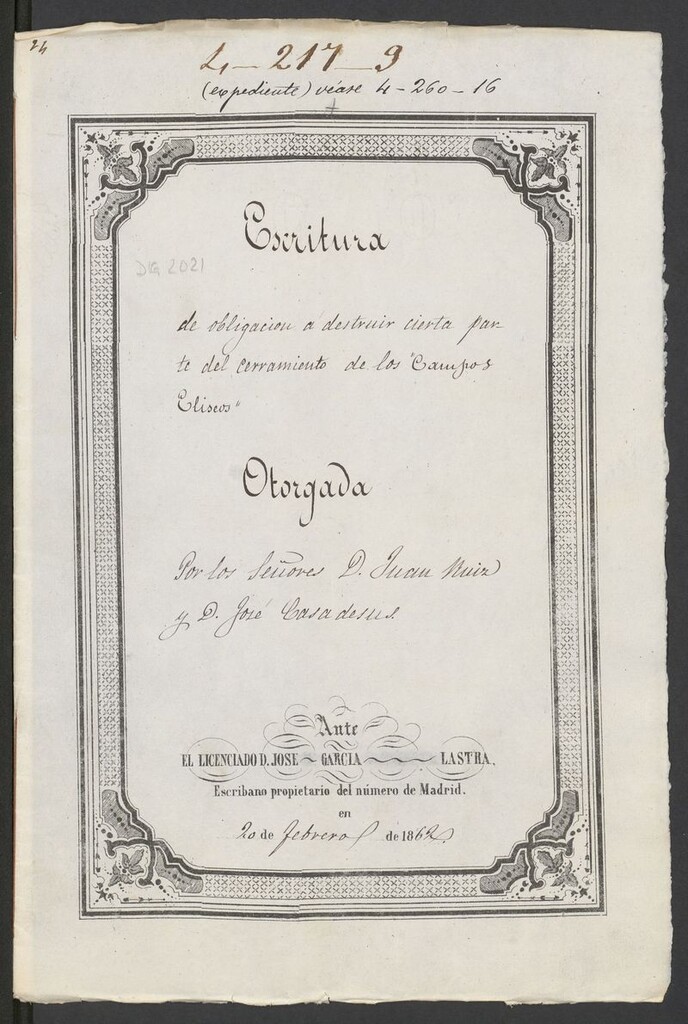 24
4-217-9
(expediente) véase 4-260-16
Escritura
DIG 2021
de obligacion a destruir cierta par
te del cerramiento de los "Campos
Eliseos"
Otorgada
Por los Señores D. Juan Ruiz
y D. José Casadesus.
Ante
EL LICENCIADO D. JOSE GARCIA LASTRA,
Escribano propietario del número de Madrid.
en
20 de febrero de 1862